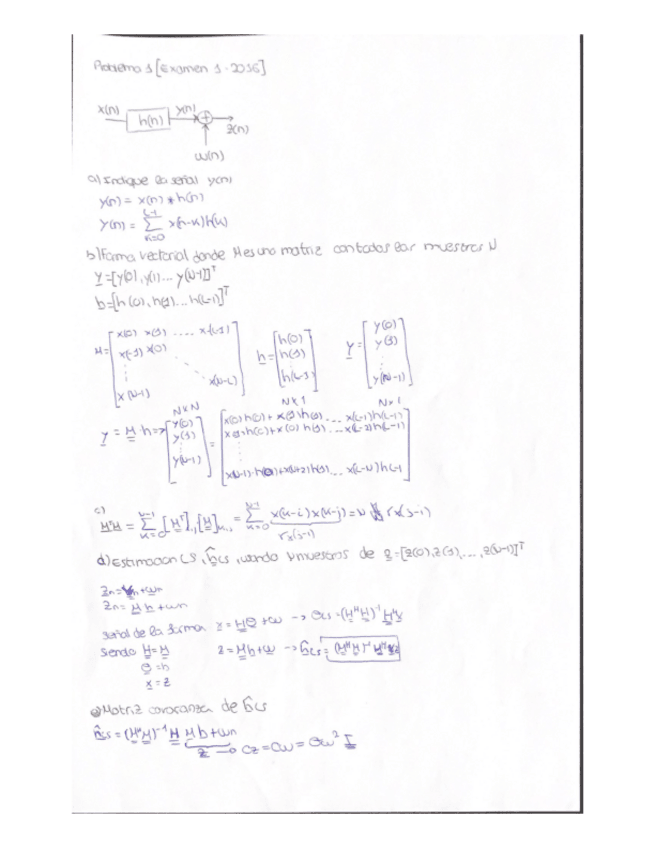 Problema 1 [Examen 1-2016]
x(n) h(n) y(n) + z(n)
w(n)
a) Indique la señal y(n)
y(n) = x(n) * h(n)
y(n) = Σ_{k=0}^{L-1} x(n-k)h(k)
b) Forma vectorial donde M es una matriz con todas las muestras N
y = [y(0), y(1)... y(N-1)]^T
h = [h(0), h(1)... h(L-1)]^T
M = [x(0) x(1) .... x(L-1)
x(-1) x(0)
x(N-1) x(N-L)]
h = [h(0) h(1) h(L-1)]
y = [y(0) y(1) y(N-1)]
N×N N×1 N×1
y = M·h => [y(0) y(1) y(N-1)] = [x(0)h(0) + x(1)h(1)... x(L-1)h(L-1)
c)
M^H M = Σ_{k=0}^{N-1} [M^T] [M] = Σ_{k=0}^{N-1} x(k-i)x(k-j) = N rx(j-1)
rx(j-1)
d) Estimacion LS, ĥLS, usando N muestras de z = [z(0), z(1), ..., z(N-1)]^T
zn = yn + wn
zn = M h + wn
señal de la forma x = Hθ + w → θLS = (H^H H)^-1 H^H x
siendo H = M
z = Mh + w → ĥLS = (M^H M)^-1 M^H z
θ = h
x = z
e) Matriz covarianza de ĥLS
ĥLS = (M^H M)^-1 M M h + wn
z → Cz = Cw = σw² I